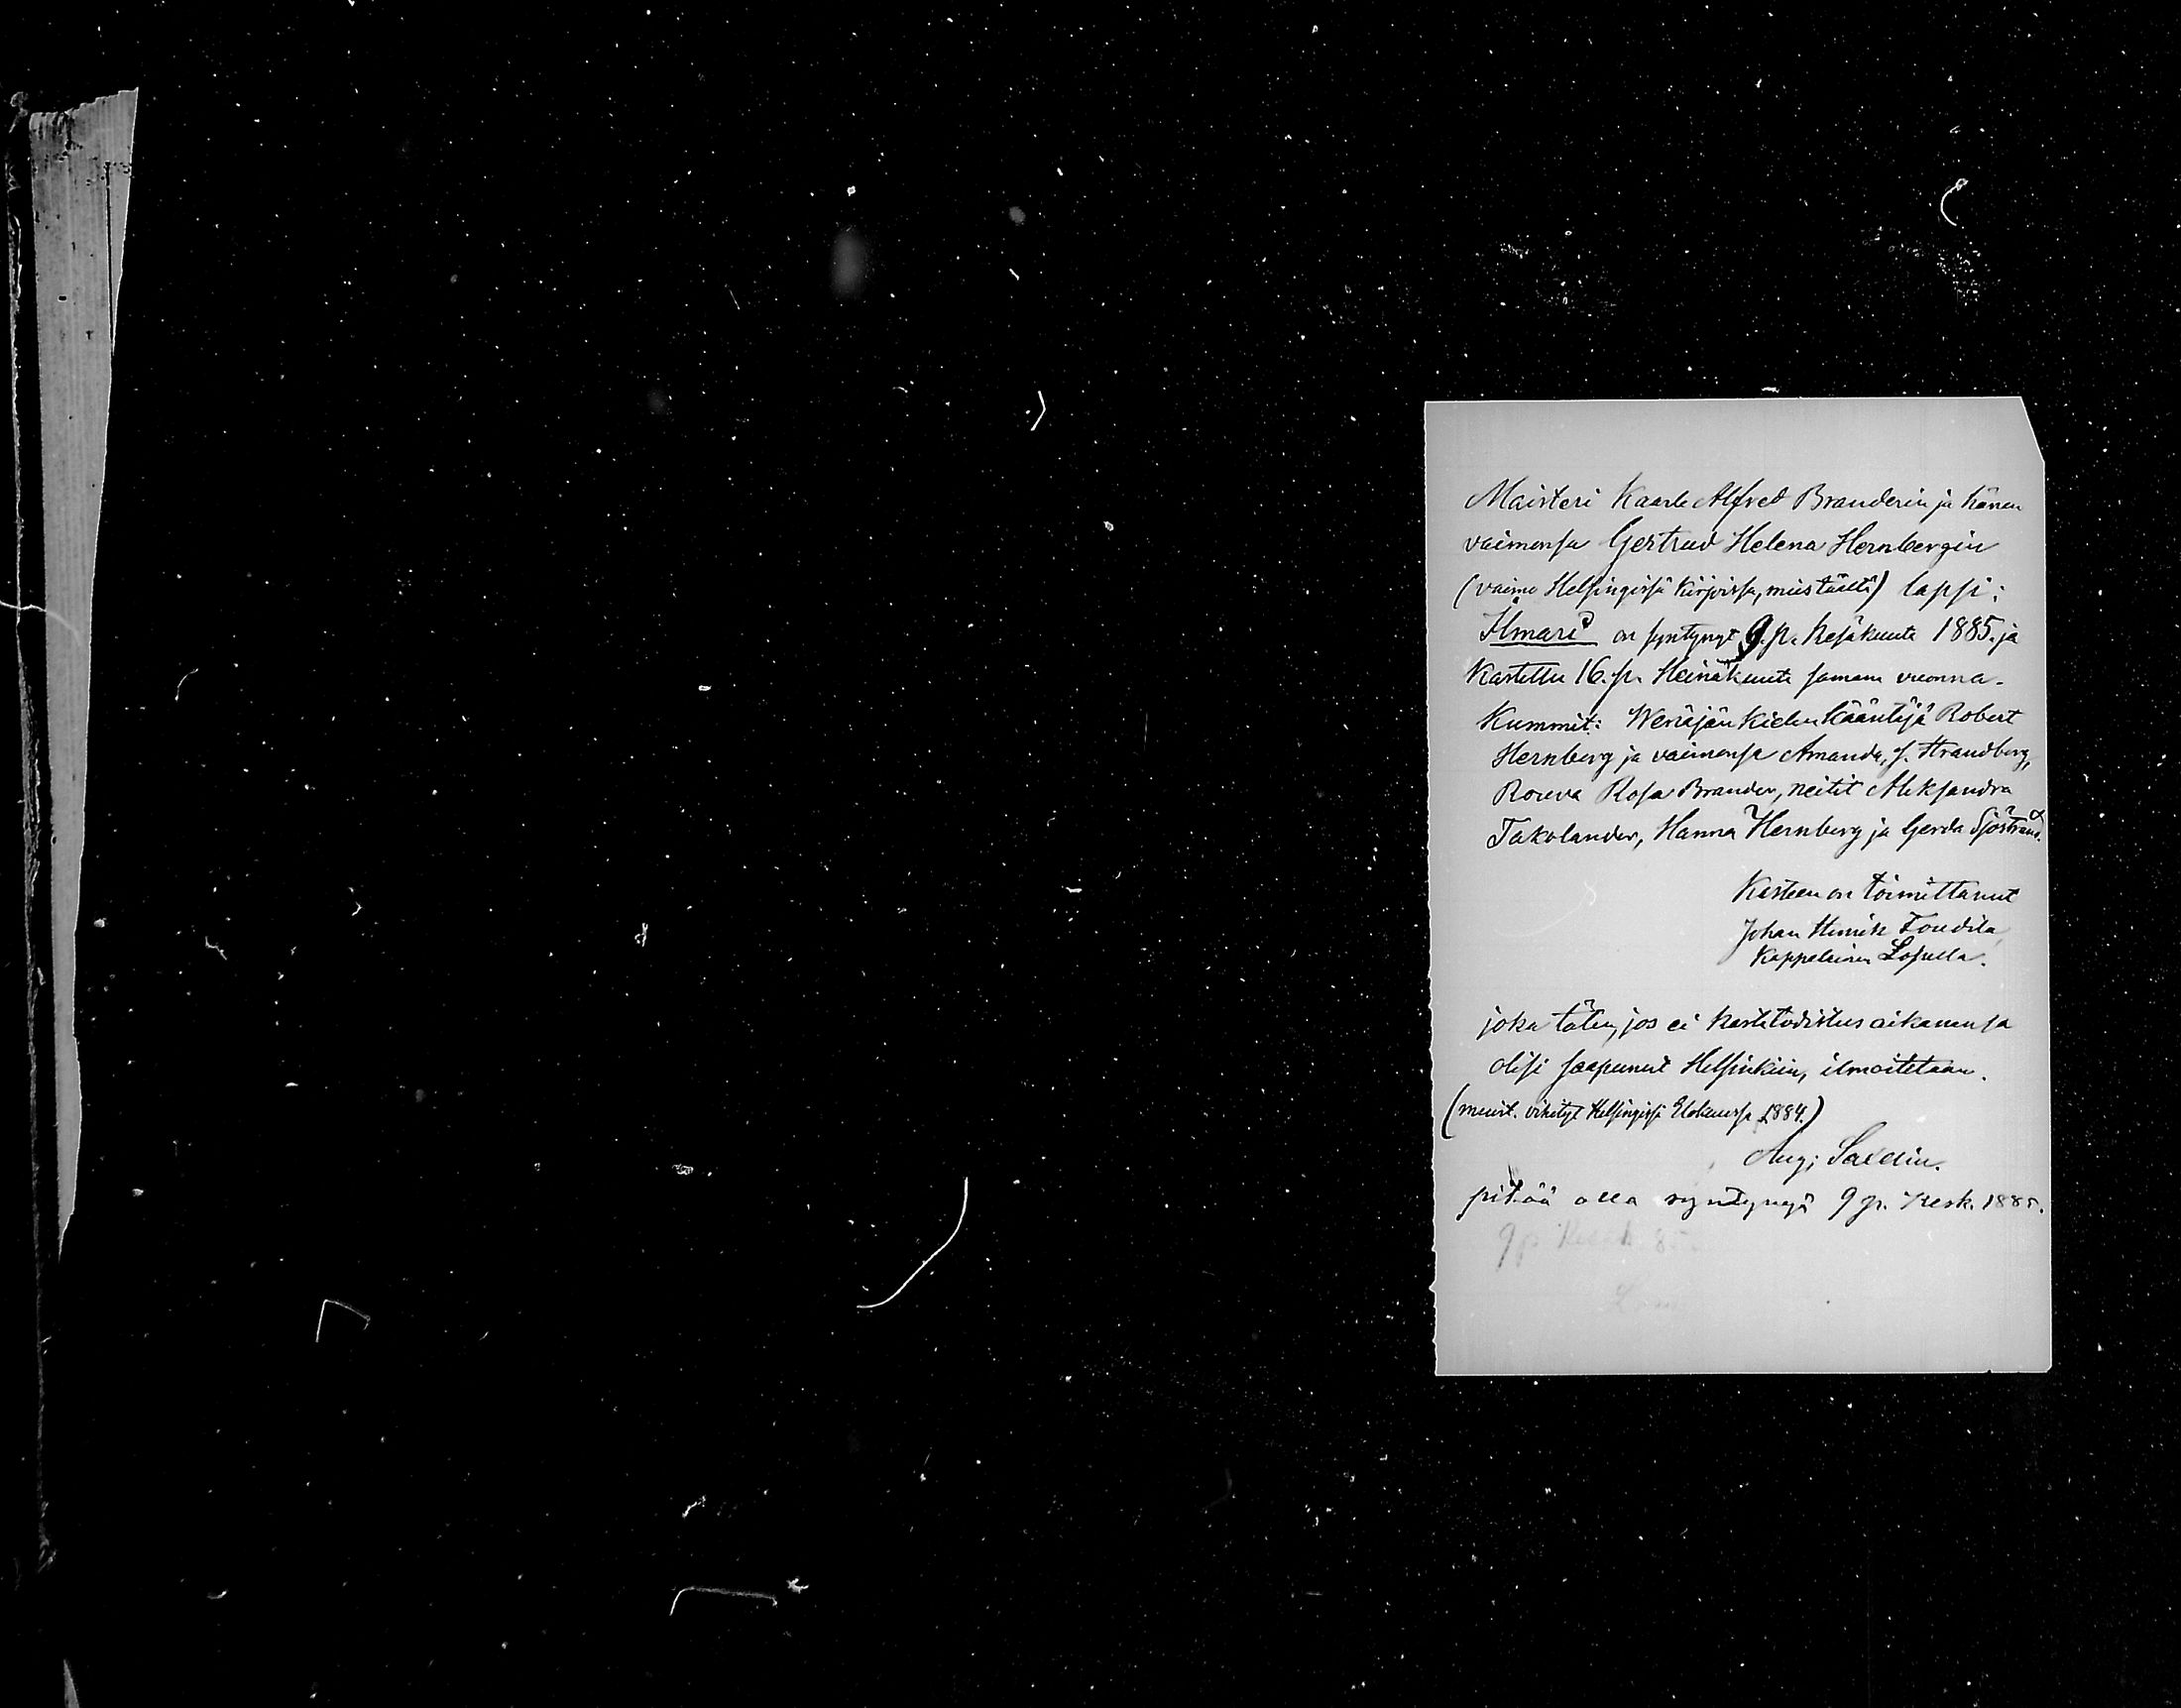 Maisteri Kaarle Alfred Branderin ja hänen
vaimonsa Gertrud Helena Hernbergin
(vaimo Helsingissä kirjoissa, mies täällä) lapsi:
Ilmari on syntynyt 9. p. Kesäkuuta 1885. ja
kastettu 16. p. Heinäkuuta samana vuonna.
Kummit: Wenäjän kielen kääntäjä Robert
Hernberg ja vaimonsa Amanda, s. Strandberg,
Rouva Rosa Brander, neitit Aleksandra
Takolander, Hanna Hernberg ja Gerda Sjöstrand.
Kasteen on toimittanut
Johan Henrik
Kappelainen Lopella.
joka täten, jos ei kastetodistus aikanansa
olisi saapunut Helsinkiin, ilmoitetaan.
(muist. vihityt Helsingissä Elokuussa 1884.)
Aug.
pitää olla syntynyt 9 p. Kesk. 1885.
9 p. 85.